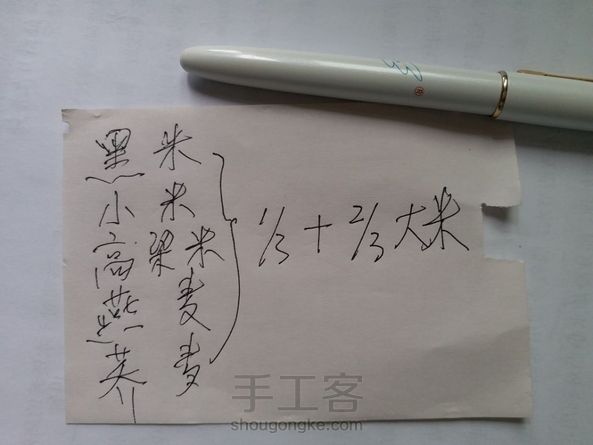 黑米
小米
高粱米
燕麦
荞麦
} 1/3 + 2/3 大米
手工客
shougongke.com